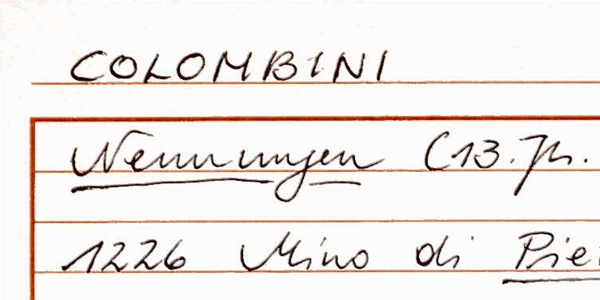 COLOMBINI
Nennungen (13. Jh.
1226 Mino di Pie